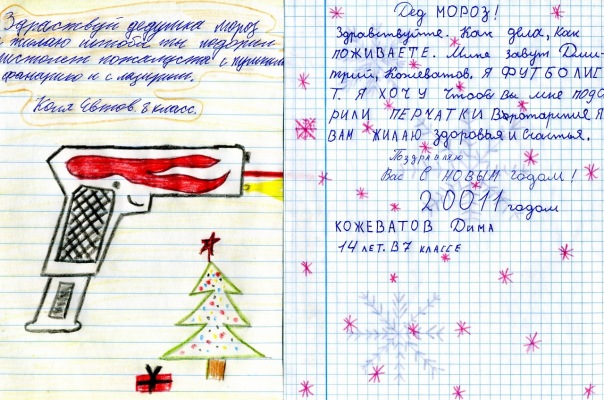 Здраствуй дедушка мороз
я желаю чтобы ты подарил
пистолет пожалуста с пульками
фанариком и с лазерам.
Коля 8 класс.
Дед МОРОЗ!
Здравствуйте. Как дела, как
ПОЖИВАЕТЕ. Мине завут Дми-
трий, Кожеватов. Я ФУТБОЛИС
Т. Я ХОЧУ Чтобы Вы мне пода
РИЛИ ПЕРЧАТКИ Воротарские Я
ВАМ ЖИЛАЮ здоровья и счастья.
Поздравляю
Вас С НОВЫМ годом!
20011 годом
КОЖЕВАТОВ Дима
14 лет. В 7 КЛАССЕ